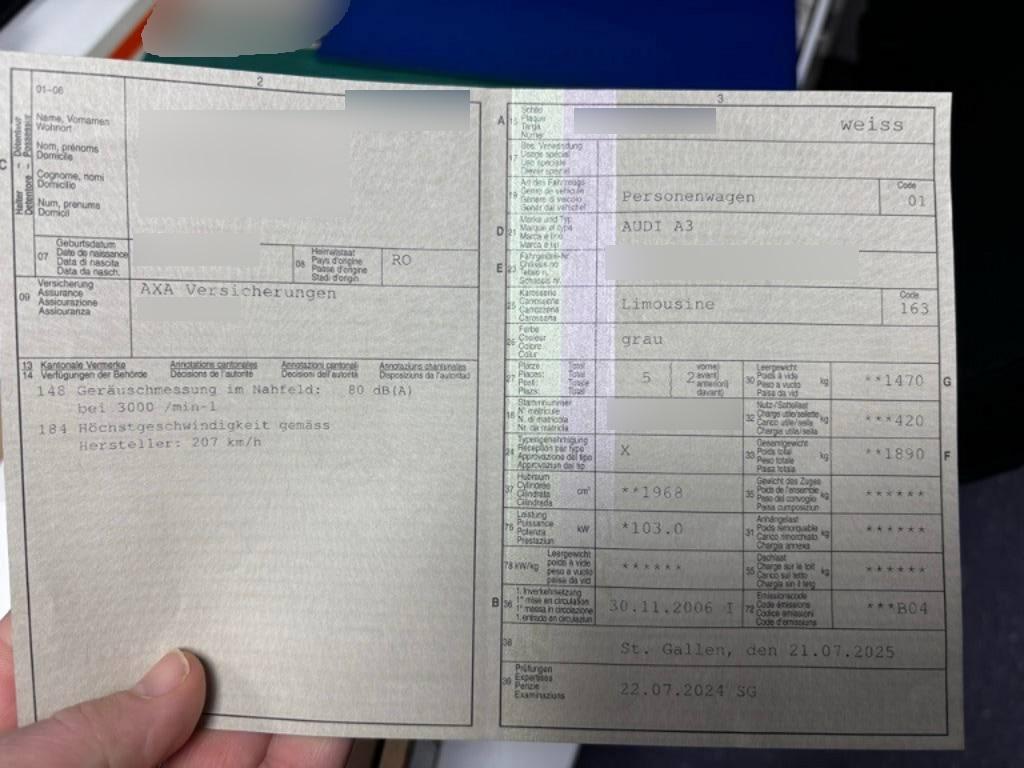 2
01-06
Name, Vornamen
Wohnort
Nom, prénoms
Domicile
Cognome, nomi
Domicilio
Num, prenums
Domicil
C
Halter
Détenteur
07
Geburtsdatum
Date de naissance
Data di nascita
Data da nasch.
08
Heimatstaat
Pays d'origine
Paese d'origine
Stadi d'origin
RO
09
Versicherung
Assurance
Assicurazione
Assicuranza
AXA Versicherungen
13 Kantonale Vermerke Annotations cantonales Annotazioni cantonali Annotaziuns chantunalas
14 Verfügungen der Behörde Décisions de l'autorité Decisioni dell'autorità Disposiziuns da l'autoritad
148 Geräuschmessung im Nahfeld: 80 dB(A)
bei 3000 /min-1
184 Höchstgeschwindigkeit gemäss
Hersteller: 207 km/h
3
A 15
Schild
Plaque
Targa
Numer
weiss
17
Bes. Verwendung
Usage spécial
Uso speciale
Diever spezial
19
Art des Fahrzeugs
Genre de véhicule
Genere di veicolo
Gener dal vehichel
Personenwagen
Code
01
D 21
Marke und Typ
Marque et type
Marca e tipo
Marca e tip
AUDI A3
E 23
Fahrgestell-Nr.
Châssis no
Telaio n.
Schassis nr.
25
Karosserie
Carrosserie
Carrozzeria
Carossaria
Limousine
Code
163
26
Farbe
Couleur
Colore
Colur
grau
27
Plätze Total
Places: Total
Posti: Totale
Plazs: Total
5
2
vorne)
avant)
anteriori)
davant)
30
Leergewicht
Poids à vide
Peso a vuoto
Paisa da vid
kg
**1470
G
18
Stammnummer
N° matricule
N. di matricola
Nr. da matricla
32
Nutz-/Sattellast
Charge utile/sellette
Carico utile/sella
Chargia utila/sella
kg
***420
24
Typengenehmigung
Réception par type
Approvazione del tipo
Approvaziun dal tip
X
33
Gesamtgewicht
Poids total
Peso totale
Paisa totala
kg
**1890
F
37
Hubraum
Cylindrée
Cilindrata
Cilindrada
cm³
**1968
35
Gewicht des Zuges
Poids de l'ensemble
Peso del convoglio
Paisa cumposiziun
kg
******
76
Leistung
Puissance
Potenza
Prestaziun
kW
*103.0
31
Anhängelast
Poids remorquable
Carico rimorchiato
Chargia annexa
kg
******
78 kW/kg
Leergewicht
poids à vide
peso a vuoto
paisa da vid
******
55
Dachlast
Charge sur le toit
Carico sul tetto
Chargia sin il tetg
kg
******
B 36
1. Inverkehrsetzung
1re mise en circulation
1a messa in circolazione
1. entrada en circulaziun
30.11.2006 I
72
Emissionscode
Code émissions
Codice emissioni
Code d'emissiuns
***B04
38
St. Gallen, den 21.07.2025
39
Prüfungen
Expertises
Perizie
Examinaziuns
22.07.2024 SG